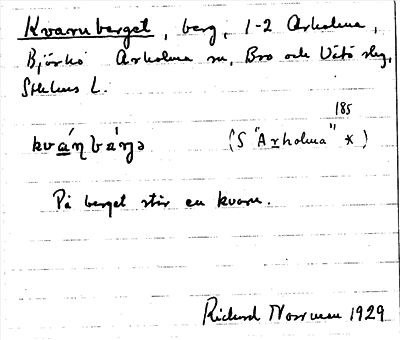 Kvarnberget, berg, 1-2 Arholma,
Björkö Arholma sn, Bro och Vätö slg,
Sthlms L.
185
kvá́ṇbáŋə (S "Arholma" *)
På berget står en kvarn.
Rickard Norrman 1929